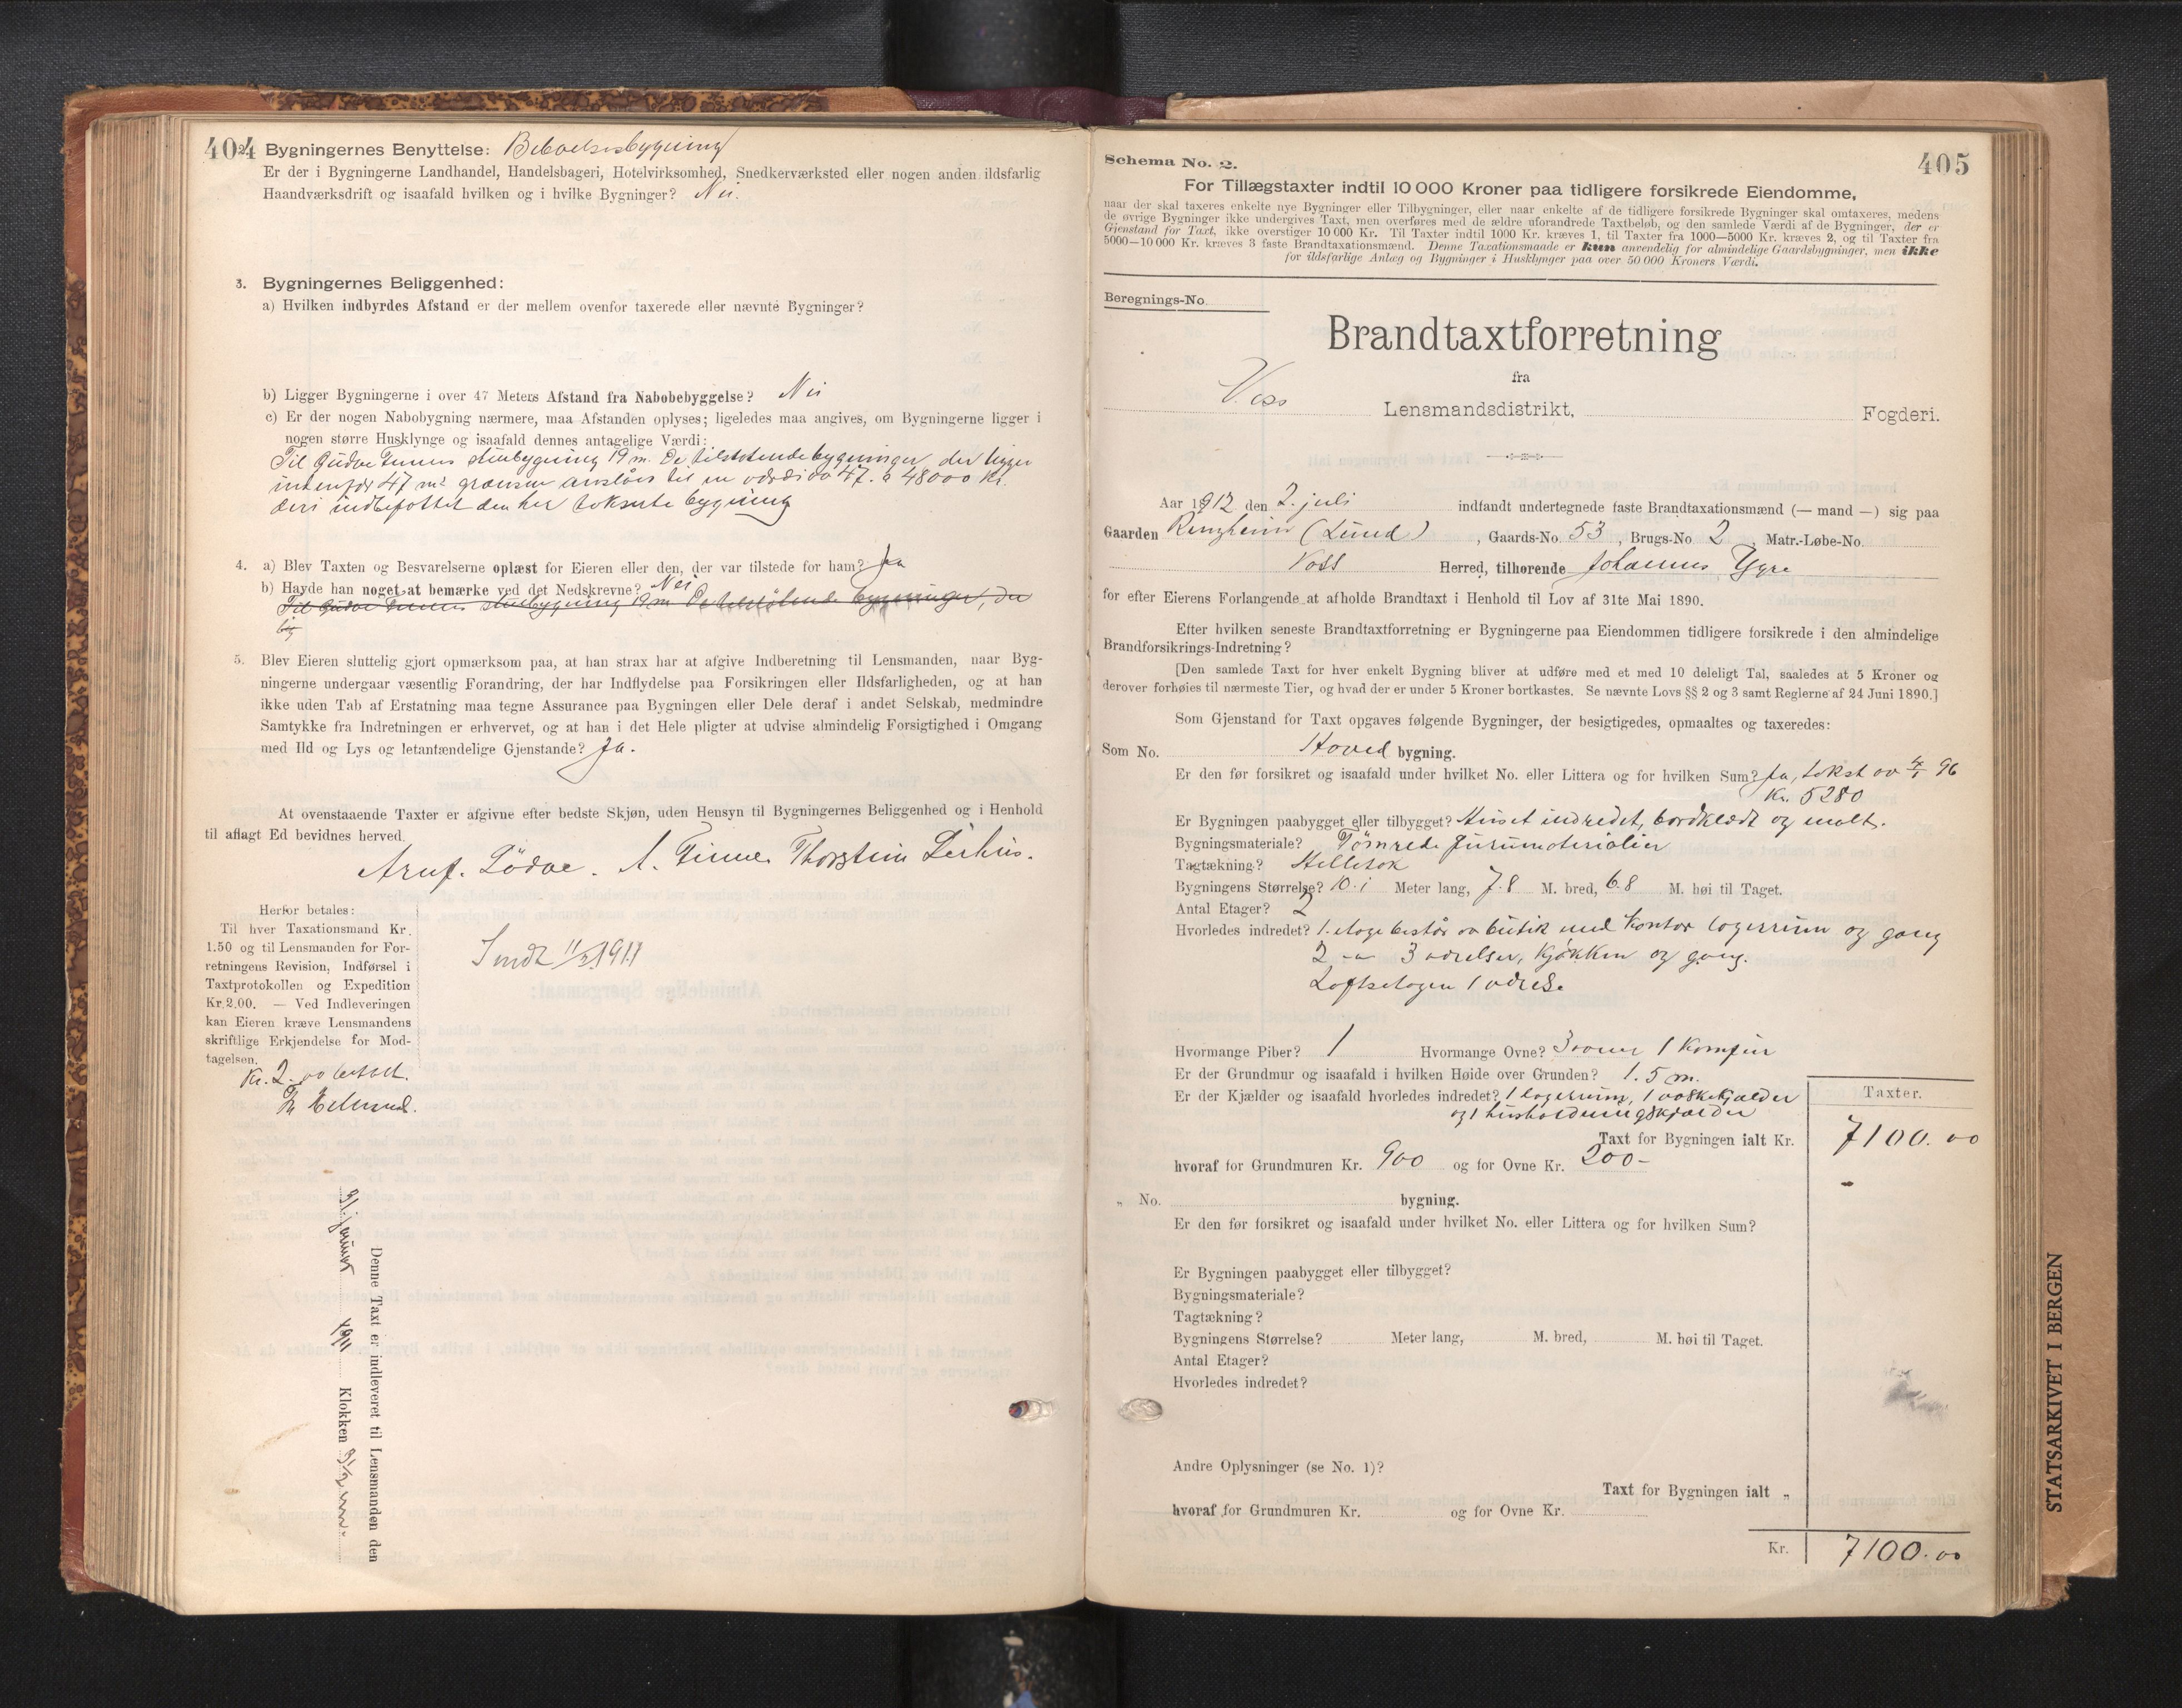 404
Bygningernes Benyttelse: Beboelsesbygning
Er der i Bygningerne Landhandel, Handelsbageri, Hotelvirksomhed, Snedkerværksted eller nogen anden ildsfarlig
Haandværksdrift og isaafald hvilken og i hvilke Bygninger? Nei.
3. Bygningernes Beliggenhed:
a) Hvilken indbyrdes Afstand er der mellem ovenfor taxerede eller nævnte Bygninger?
b) Ligger Bygningerne i over 47 Meters Afstand fra Nabobebyggelse? Nei
c) Er der nogen Nabobygning nærmere, maa Afstanden oplyses; ligeledes maa angives, om Bygningerne ligger i
nogen større Husklynge og isaafald dennes antagelige Værdi:
Til Gudve Finnes stuebygning 19 m. De tilstøtende bygninger, der ligger
indenfor 47 m² grænsen anslåes til en værdi av 47. à 48000 Kr.
deri indbefattet den her takserte bygning
4. a) Blev Taxten og Besvarelserne oplæst for Eieren eller den, der var tilstede for ham? Ja
b) Havde han noget at bemærke ved det Nedskrevne? Nei
Til Gudve Finnes stuebygning 19 m De tilstøtende bygninger, der
lig
5. Blev Eieren sluttelig gjort opmærksom paa, at han strax har at afgive Indberetning til Lensmanden, naar Byg-
ningerne undergaar væsentlig Forandring, der har Indflydelse paa Forsikringen eller Ildsfarligheden, og at han
ikke uden Tab af Erstatning maa tegne Assurance paa Bygningen eller Dele deraf i andet Selskab, medmindre
Samtykke fra Indretningen er erhvervet, og at han i det Hele pligter at udvise almindelig Forsigtighed i Omgang
med Ild og Lys og letantændelige Gjenstande? Ja.
At ovenstaaende Taxter er afgivne efter bedste Skjøn, uden Hensyn til Bygningernes Beliggenhed og i Henhold
til aflagt Ed bevidnes herved.
A. Finne. Thorstein
Herfor betales:
Til hver Taxationsmand Kr.
1.50 og til Lensmanden for For-
retningens Revision, Indførsel i
Taxtprotokollen og Expedition
Kr. 2.00. — Ved Indleveringen
kan Eieren kræve Lensmandens
skriftlige Erkjendelse for Mod-
tagelsen.
Kr. 2.00 betalt.
Sendt 11/2 1911
Denne Taxt er indleveret til Lensmanden den
31. januar 1911 Klokken
Schema No. 2.
405
For Tillægstaxter indtil 10 000 Kroner paa tidligere forsikrede Eiendomme,
naar der skal taxeres enkelte nye Bygninger eller Tilbygninger, eller naar enkelte af de tidligere forsikrede Bygninger skal omtaxeres, medens
de øvrige Bygninger ikke undergives Taxt, men overføres med de ældre uforandrede Taxtbeløb, og den samlede Værdi af de Bygninger, der er
Gjenstand for Taxt, ikke overstiger 10 000 Kr. Til Taxter indtil 1000 Kr. kræves 1, til Taxter fra 1000—5000 Kr. kræves 2, og til Taxter fra
5000—10 000 Kr. kræves 3 faste Brandtaxationsmænd. Denne Taxationsmaade er kun anvendelig for almindelige Gaardsbygninger, men ikke
for ildsfarlige Anlæg og Bygninger i Husklynger paa over 50 000 Kroners Værdi.
Beregnings-No.
Brandtaxtforretning
fra
Voss Lensmandsdistrikt, Fogderi.
Aar 1912 den 2. juli indfandt undertegnede faste Brandtaxationsmænd (— mand —) sig paa
Gaarden Ringheim (Lund), Gaards-No. 53, Brugs-No 2 Matr.-Løbe-No.
Voss Herred, tilhørende Johannes Ygre
for efter Eierens Forlangende at afholde Brandtaxt i Henhold til Lov af 31te Mai 1890.
Efter hvilken seneste Brandtaxtforretning er Bygningerne paa Eiendommen tidligere forsikrede i den almindelige
Brandforsikrings-Indretning?
[Den samlede Taxt for hver enkelt Bygning bliver at udføre med et med 10 deleligt Tal, saaledes at 5 Kroner og
derover forhøies til nærmeste Tier, og hvad der er under 5 Kroner bortkastes. Se nævnte Lovs §§ 2 og 3 samt Reglerne af 24 Juni 1890.]
Som Gjenstand for Taxt opgaves følgende Bygninger, der besigtigedes, opmaaltes og taxeredes:
Som No. Hovedbygning.
Er den før forsikret og isaafald under hvilket No. eller Littera og for hvilken Sum? Ja, takst av 96
Kr. 5280
Er Bygningen paabygget eller tilbygget? Huset indredet, bordklædt og malt.
Bygningsmateriale? Tømrede furumaterialier
Tagtækning? Helletak
Bygningens Størrelse? 10.1 Meter lang, 7.8 M. bred, 6.8 M. høi til Taget.
Antal Etager? 2
Hvorledes indredet? 1. etage består av butik med kontor lagerrum og gang
2 -"- 3 værelser, kjøkken og gang.
Loftsetagen 1 værelse
Hvormange Piber? 1 Hvormange Ovne? 3 ovner 1 komfur
Er der Grundmur og isaafald i hvilken Høide over Grunden? 1.5 m.
Er der Kjælder og isaafald hvorledes indredet? 1 lagerrum, 1 vaskekjælder
og 1 husholdningskjælder
Taxter.
Taxt for Bygningen ialt Kr. 7100.00
hvoraf for Grundmuren Kr. 900 og for Ovne Kr. 200-
" No. bygning.
Er den før forsikret og isaafald under hvilket No. eller Littera og for hvilken Sum?
Er Bygningen paabygget eller tilbygget?
Bygningsmateriale?
Tagtækning?
Bygningens Størrelse? Meter lang, M. bred, M. høi til Taget.
Antal Etager?
Hvorledes indredet?
Andre Oplysninger (se No. 1)?
Taxt for Bygningen ialt "
hvoraf for Grundmuren Kr. og for Ovne Kr.
Kr. 7100.00
STATSARKIVET I BERGEN